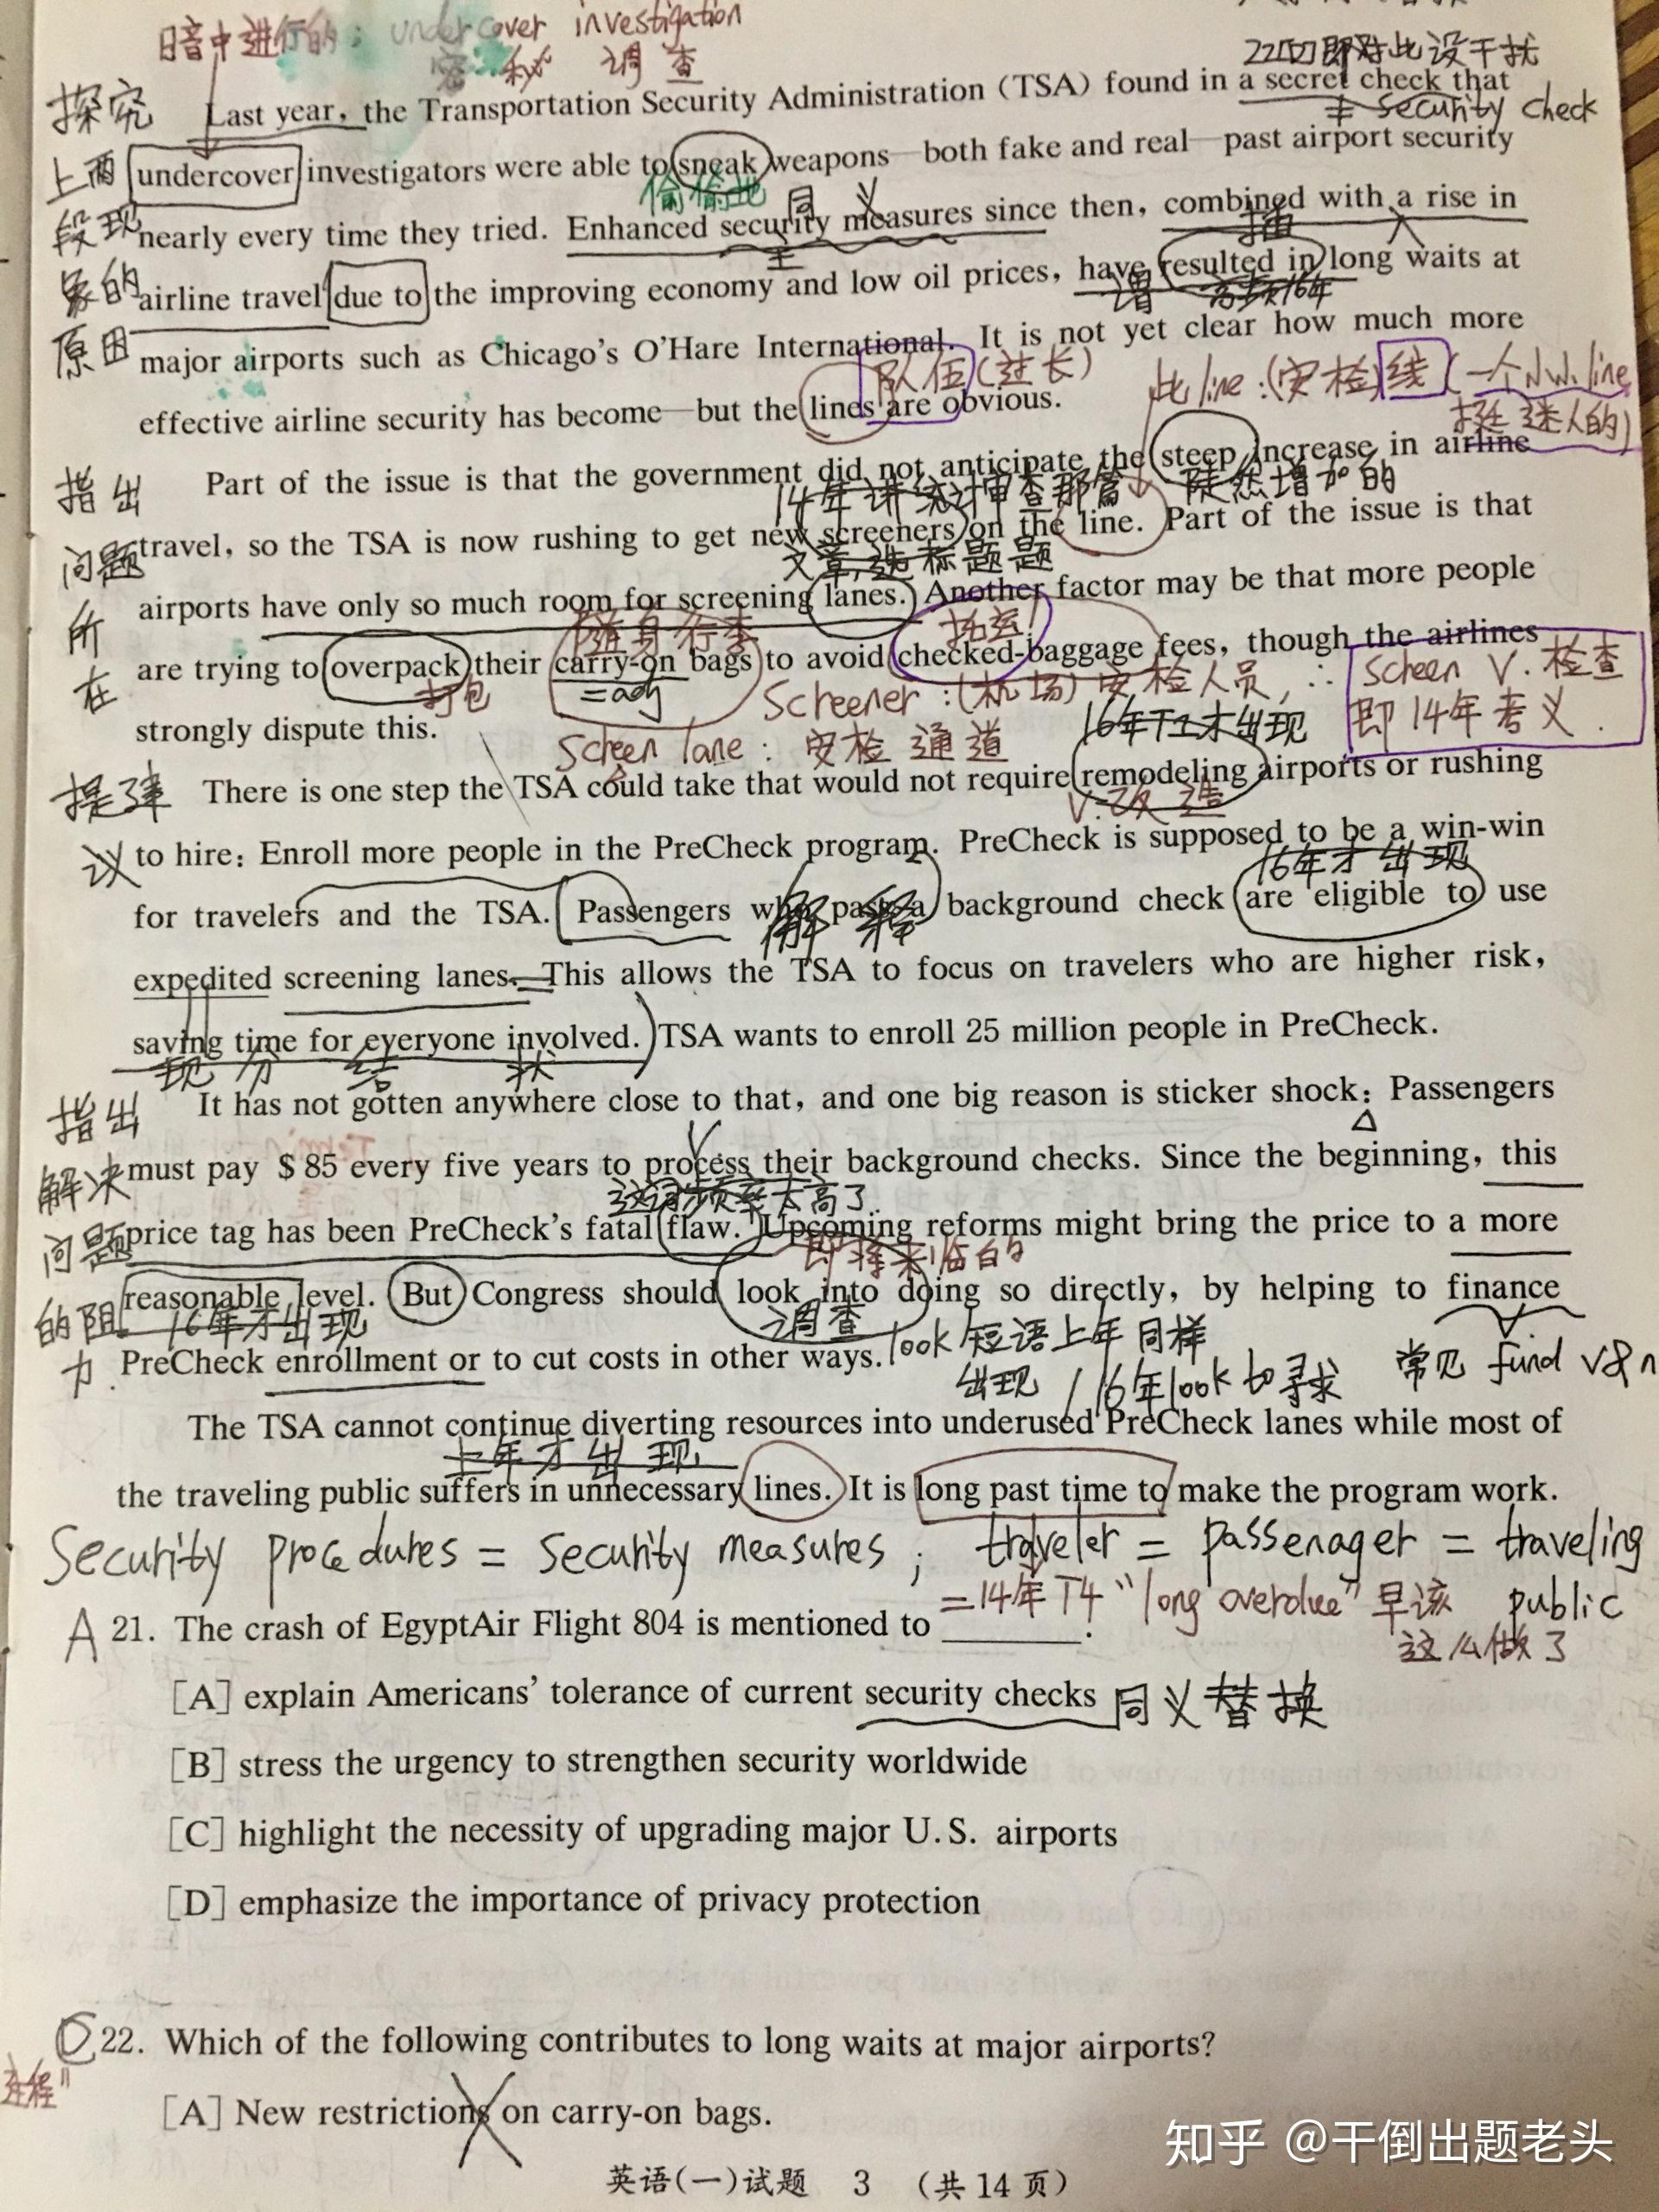 暗中进行的；undercover investigation
秘 调查
22四即对此设干扰
探究
Last year, the Transportation Security Administration (TSA) found in a secret check that
≠ security check
上两
undercover investigators were able to sneak weapons—both fake and real—past airport security
偷偷地 同义
段现
nearly every time they tried. Enhanced security measures since then, combined with a rise in
主 插入
象的
airline travel due to the improving economy and low oil prices, have resulted in long waits at
谓 高频16年
原因
major airports such as Chicago's O'Hare International. It is not yet clear how much more
队伍(过长) 此line:(安检)线(一个小小line
effective airline security has become—but the lines are obvious.
挺迷人的)
指出
Part of the issue is that the government did not anticipate the steep increase in airline
14年讲统计审查那篇 陡然增加的
问题
travel, so the TSA is now rushing to get new screeners on the line. Part of the issue is that
文章,选标题题
所
airports have only so much room for screening lanes. Another factor may be that more people
随身行李 托运!
在
are trying to overpack their carry-on bags to avoid checked-baggage fees, though the airlines
打包 =adj Screener:(机场)安检人员, ∴ screen v.检查
strongly dispute this.
16年T2才出现 即14年考义.
Screen lane: 安检通道
提建
There is one step the TSA could take that would not require remodeling airports or rushing
v.=改造
议
to hire: Enroll more people in the PreCheck program. PreCheck is supposed to be a win-win
16年才出现
for travelers and the TSA. Passengers who pass a background check are eligible to use
解释
expedited screening lanes. This allows the TSA to focus on travelers who are higher risk,
saving time for everyone involved. TSA wants to enroll 25 million people in PreCheck.
现分 结状
指出
It has not gotten anywhere close to that, and one big reason is sticker shock: Passengers
解决
must pay $85 every five years to process their background checks. Since the beginning, this
这词频率太高了
问题
price tag has been PreCheck's fatal flaw. Upcoming reforms might bring the price to a more
即将来临的
的阻
reasonable level. But Congress should look into doing so directly, by helping to finance
16年才出现 调查 look短语上年同样
力.
PreCheck enrollment or to cut costs in other ways.
出现/16年look to寻求 常见 fund v&n
The TSA cannot continue diverting resources into underused PreCheck lanes while most of
上年才出现
the traveling public suffers in unnecessary lines. It is long past time to make the program work.
Security procedures = security measures; traveler = passenager = traveling public
=14年T4 "long overdue" 早该这么做了
A 21. The crash of EgyptAir Flight 804 is mentioned to ______.
[A] explain Americans' tolerance of current security checks 同义替换
[B] stress the urgency to strengthen security worldwide
[C] highlight the necessity of upgrading major U.S. airports
[D] emphasize the importance of privacy protection
22. Which of the following contributes to long waits at major airports?
[A] New restrictions on carry-on bags.
知乎 @干倒出题老头
英语(一)试题 3 (共14页)